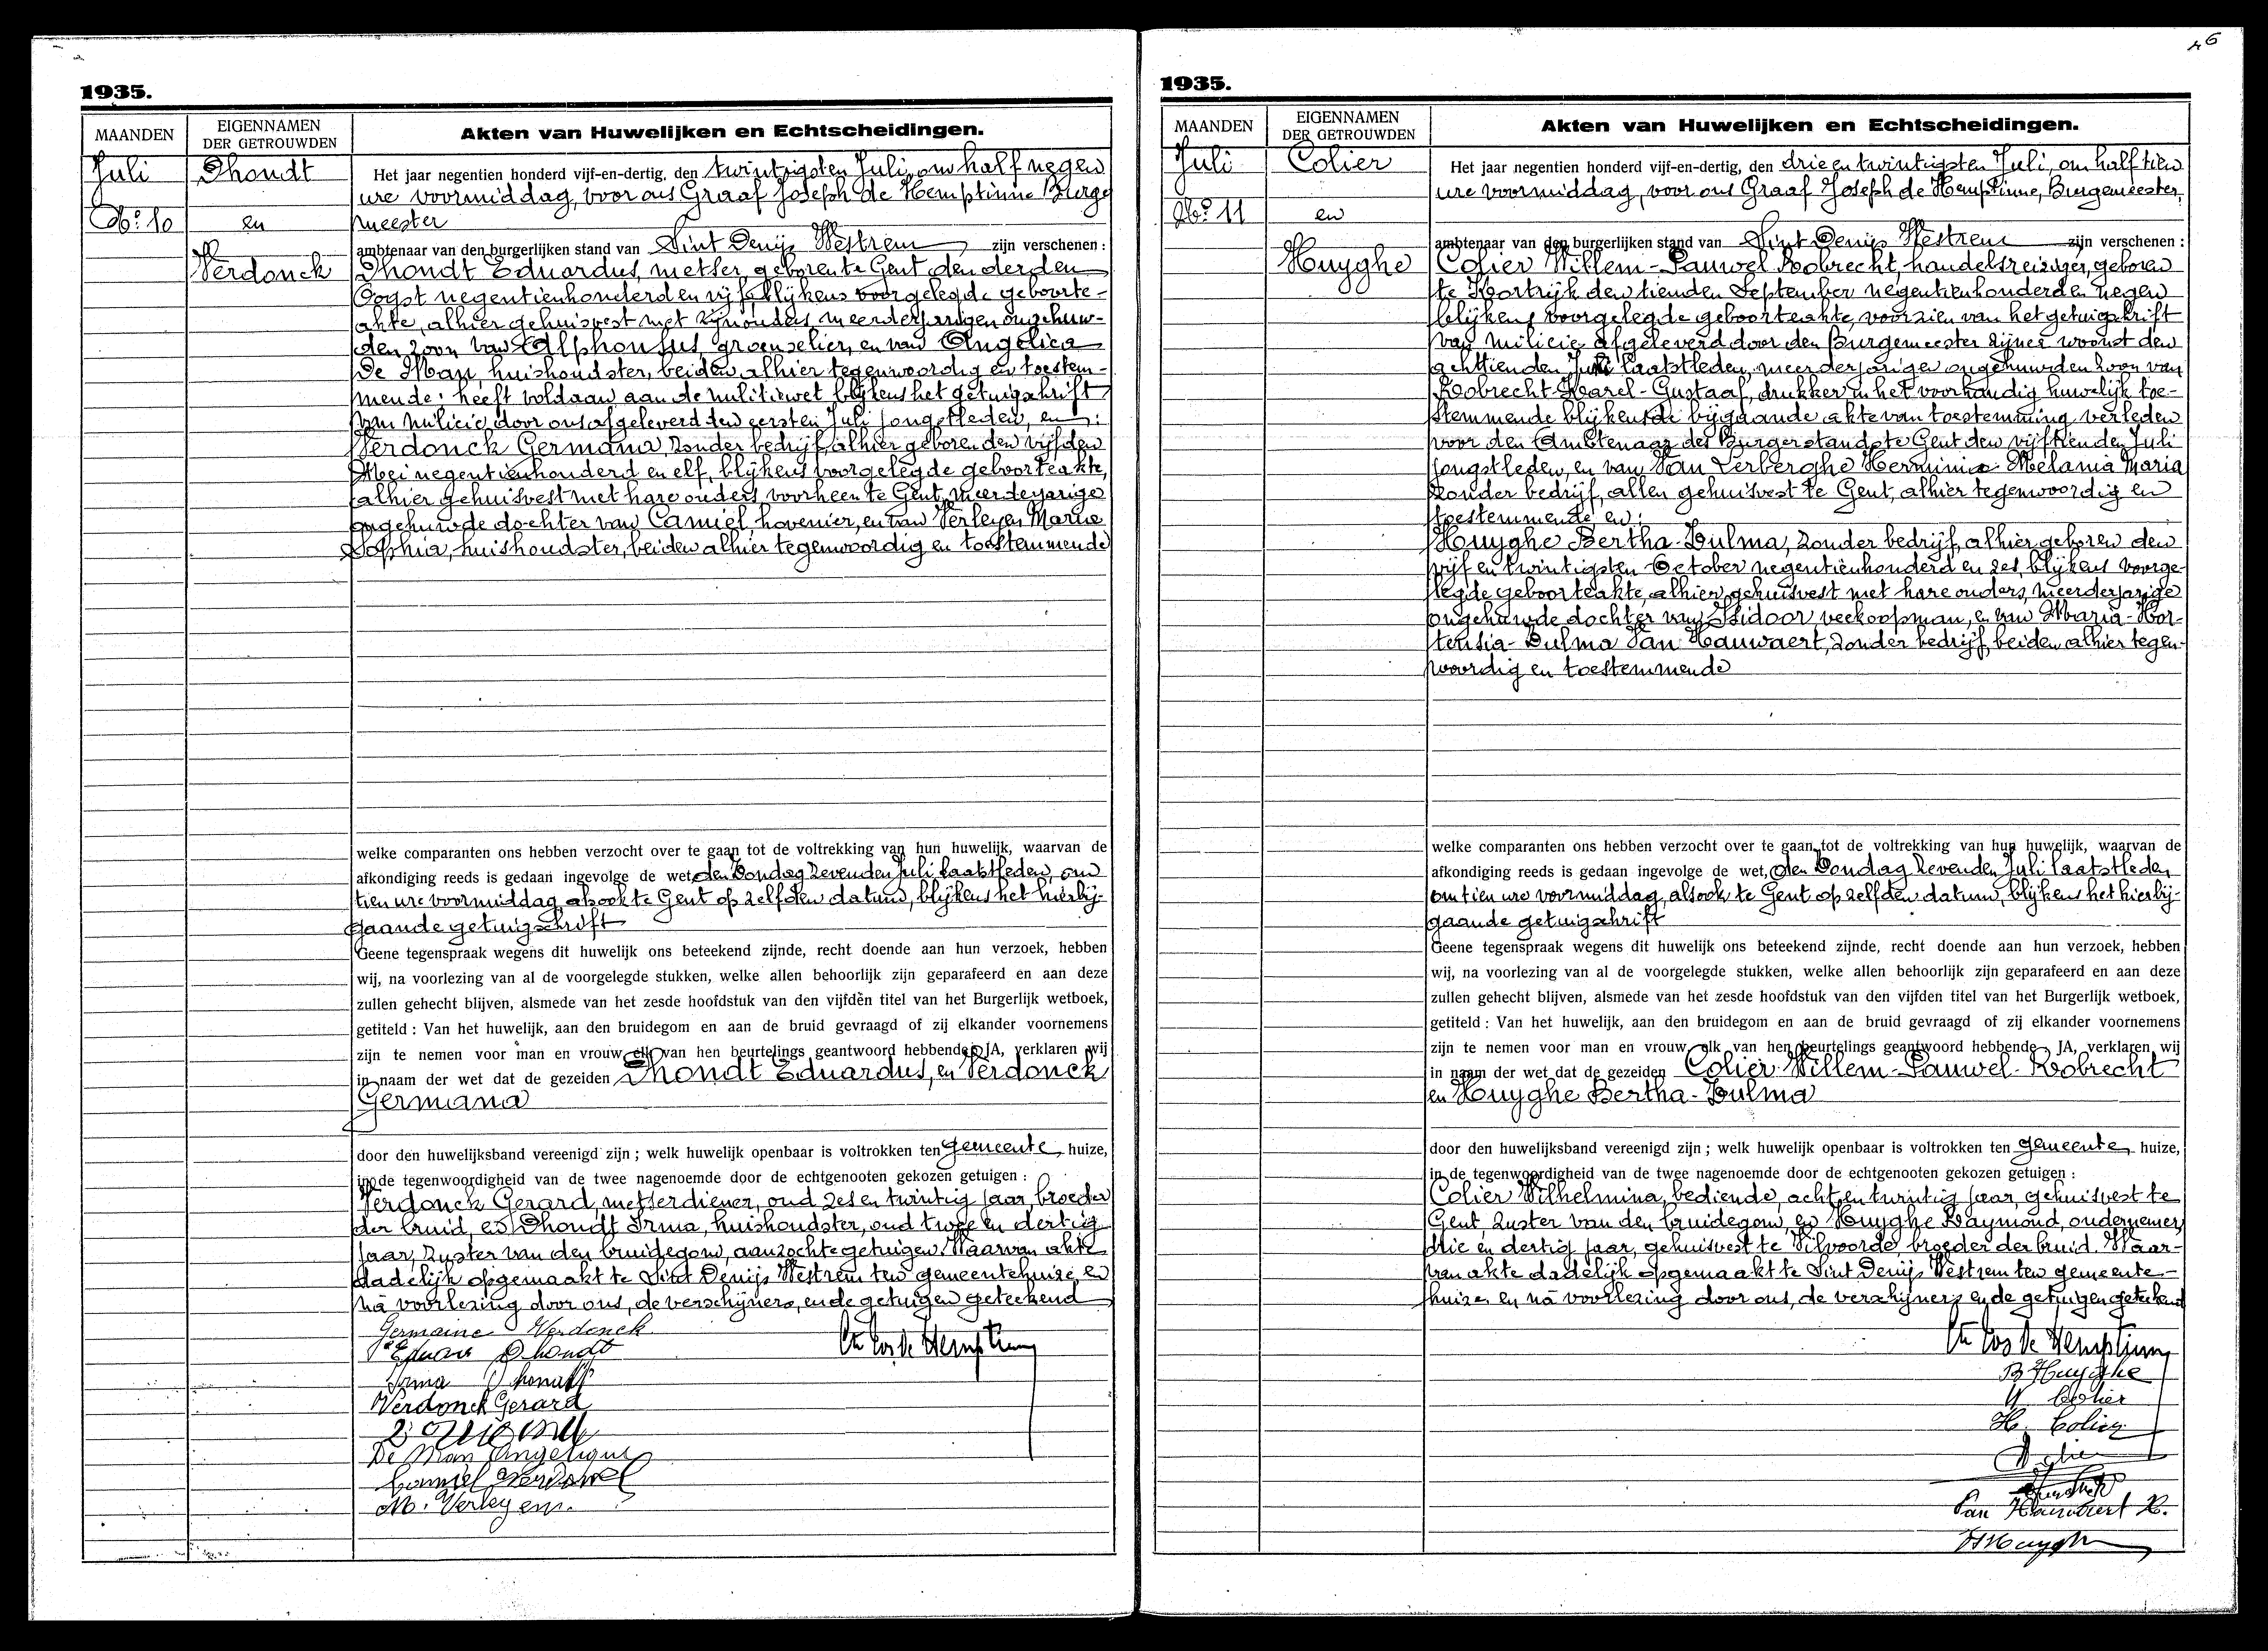 1935.
MAANDEN
EIGENNAMEN
DER GETROUWDEN
Akten van Huwelijken en Echtscheidingen.
Juli
No. 10
Dhondt
en
Verdonck
Het jaar negentien honderd vijf-en-dertig, den twintigsten Juli, om half negen
ure voormiddag, voor ons Graaf Joseph de Hemptinne Burge
meester
ambtenaar van den burgerlijken stand van Sint Denijs Westrem zijn verschenen :
Dhondt Eduardus, metser, geboren te Gent den derden
Oogst negentienhonderd en vijf blijkens voorgelegde geboorte-
akte, alhier gehuisvest met zijn ouders, meerderjarigen ongehuw-
den zoon van Alphonsus, groenselier, en van Angelica
De Man, huishoudster, beiden alhier tegenwoordig en toestem-
mende; heeft voldaan aan de militiewet blijkens het getuigschrift
van milicie door ons afgeleverd den eersten Juli jongstleden, en :
Verdonck Germana, zonder bedrijf, alhier geboren den vijfden
Mei negentienhonderd en elf, blijkens voorgelegde geboorteakte,
alhier gehuisvest met hare ouders, voorheen te Gent, meerdejarige
ongehuwde dochter van Camiel, hovenier, en van Verleyen Marie
Sophia, huishoudster, beiden alhier tegenwoordig en toestemmende
welke comparanten ons hebben verzocht over te gaan tot de voltrekking van hun huwelijk, waarvan de
afkondiging reeds is gedaan ingevolge de wet, den Zondag zevenden Juli laatstleden, om
tien ure voormiddag, alsook te Gent op zelfden datum, blijkens het hierbij-
gaande getuigschrift
Geene tegenspraak wegens dit huwelijk ons beteekend zijnde, recht doende aan hun verzoek, hebben
wij, na voorlezing van al de voorgelegde stukken, welke allen behoorlijk zijn geparafeerd en aan deze
zullen gehecht blijven, alsmede van het zesde hoofdstuk van den vijfden titel van het Burgerlijk wetboek,
getiteld : Van het huwelijk, aan den bruidegom en aan de bruid gevraagd of zij elkander voornemens
zijn te nemen voor man en vrouw, elk van hen beurtelings geantwoord hebbende JA, verklaren wij
in naam der wet dat de gezeiden Dhondt Eduardus, en Verdonck
Germana
door den huwelijksband vereenigd zijn ; welk huwelijk openbaar is voltrokken ten gemeente huize,
in de tegenwoordigheid van de twee nagenoemde door de echtgenooten gekozen getuigen :
Verdonck Gerard, metserdiener, oud zes en twintig jaar, broeder
der bruid, en Dhondt Irma, huishoudster, oud twee en dertig
jaar, zuster van den bruidegom, aanzochte getuigen. Waarvan akte
dadelijk opgemaakt te Sint Denijs Westrem ten gemeentehuize, en
na voorlezing door ons, de verschijners, en de getuigen geteekend
Germaine Verdonck
Eduard Dhondt
Irma Dhondt
Verdonck Gerard
De Man Angelique
Camiel Verdonck
M. Verleyen.
Cte Jos de Hemptinne
1935.
MAANDEN
EIGENNAMEN
DER GETROUWDEN
Akten van Huwelijken en Echtscheidingen.
Juli
No. 11
Colier
en
Huyghe
Het jaar negentien honderd vijf-en-dertig, den drie en twintigsten Juli, om half tien
ure voormiddag, voor ons Graaf Joseph de Hemptinne, Burgemeester,
ambtenaar van den burgerlijken stand van Sint Denijs Westrem zijn verschenen :
Colier Willem-Pauwel Robrecht, handelsreiziger, geboren
te Kortrijk den tienden September negentienhonderd en negen
blijkens voorgelegde geboorteakte, voorzien van het getuigschrift
van milicie afgeleverd door den Burgemeester zijner woonst den
achttienden Juli laatstleden, meerderjarige ongehuwden zoon van
Robrecht-Karel-Gustaaf, drukker in het voorhandig huwelijk toe-
stemmende blijkens de bijgaande akte van toestemming verleden
voor den Ambtenaar des Burgerstands te Gent den vijftienden Juli
jongstleden, en van Van Lerberghe Herminia Melania Maria
zonder bedrijf, allen gehuisvest te Gent, alhier tegenwoordig en
toestemmende en :
Huyghe Bertha-Zulma, zonder bedrijf, alhier geboren den
vijf en twintigsten October negentienhonderd en zes, blijkens voorge-
legde geboorteakte, alhier gehuisvest met hare ouders, meerderjarige
ongehuwde dochter van Isidoor, veekoopman, en van Maria-Hor-
tensia-Zulma Van Hauwaert, zonder bedrijf, beiden alhier tegen-
woordig en toestemmende
welke comparanten ons hebben verzocht over te gaan tot de voltrekking van hun huwelijk, waarvan de
afkondiging reeds is gedaan ingevolge de wet, den Zondag zevenden Juli laatstleden
om tien ure voormiddag, alsook te Gent op zelfden datum, blijkens het hierbij-
gaande getuigschrift
Geene tegenspraak wegens dit huwelijk ons beteekend zijnde, recht doende aan hun verzoek, hebben
wij, na voorlezing van al de voorgelegde stukken, welke allen behoorlijk zijn geparafeerd en aan deze
zullen gehecht blijven, alsmede van het zesde hoofdstuk van den vijfden titel van het Burgerlijk wetboek,
getiteld : Van het huwelijk, aan den bruidegom en aan de bruid gevraagd of zij elkander voornemens
zijn te nemen voor man en vrouw, elk van hen beurtelings geantwoord hebbende JA, verklaren wij
in naam der wet dat de gezeiden Colier Willem-Pauwel-Robrecht
en Huyghe Bertha-Zulma
door den huwelijksband vereenigd zijn ; welk huwelijk openbaar is voltrokken ten gemeente huize,
in de tegenwoordigheid van de twee nagenoemde door de echtgenooten gekozen getuigen :
Colier Wilhelmina, bediende, acht en twintig jaar, gehuisvest te
Gent, zuster van den bruidegom, en Huyghe Raymond, ondernemer,
drie en dertig jaar, gehuisvest te Vilvoorde, broeder der bruid. Waar-
van akte dadelijk opgemaakt te Sint Denijs Westrem ten gemeente-
huize, en na voorlezing door ons, de verschijners en de getuigen geteekend
Cte Jos de Hemptinne
B Huyghe
W. Colier
H. Colier
Van Hauwaert H.
Huyghe